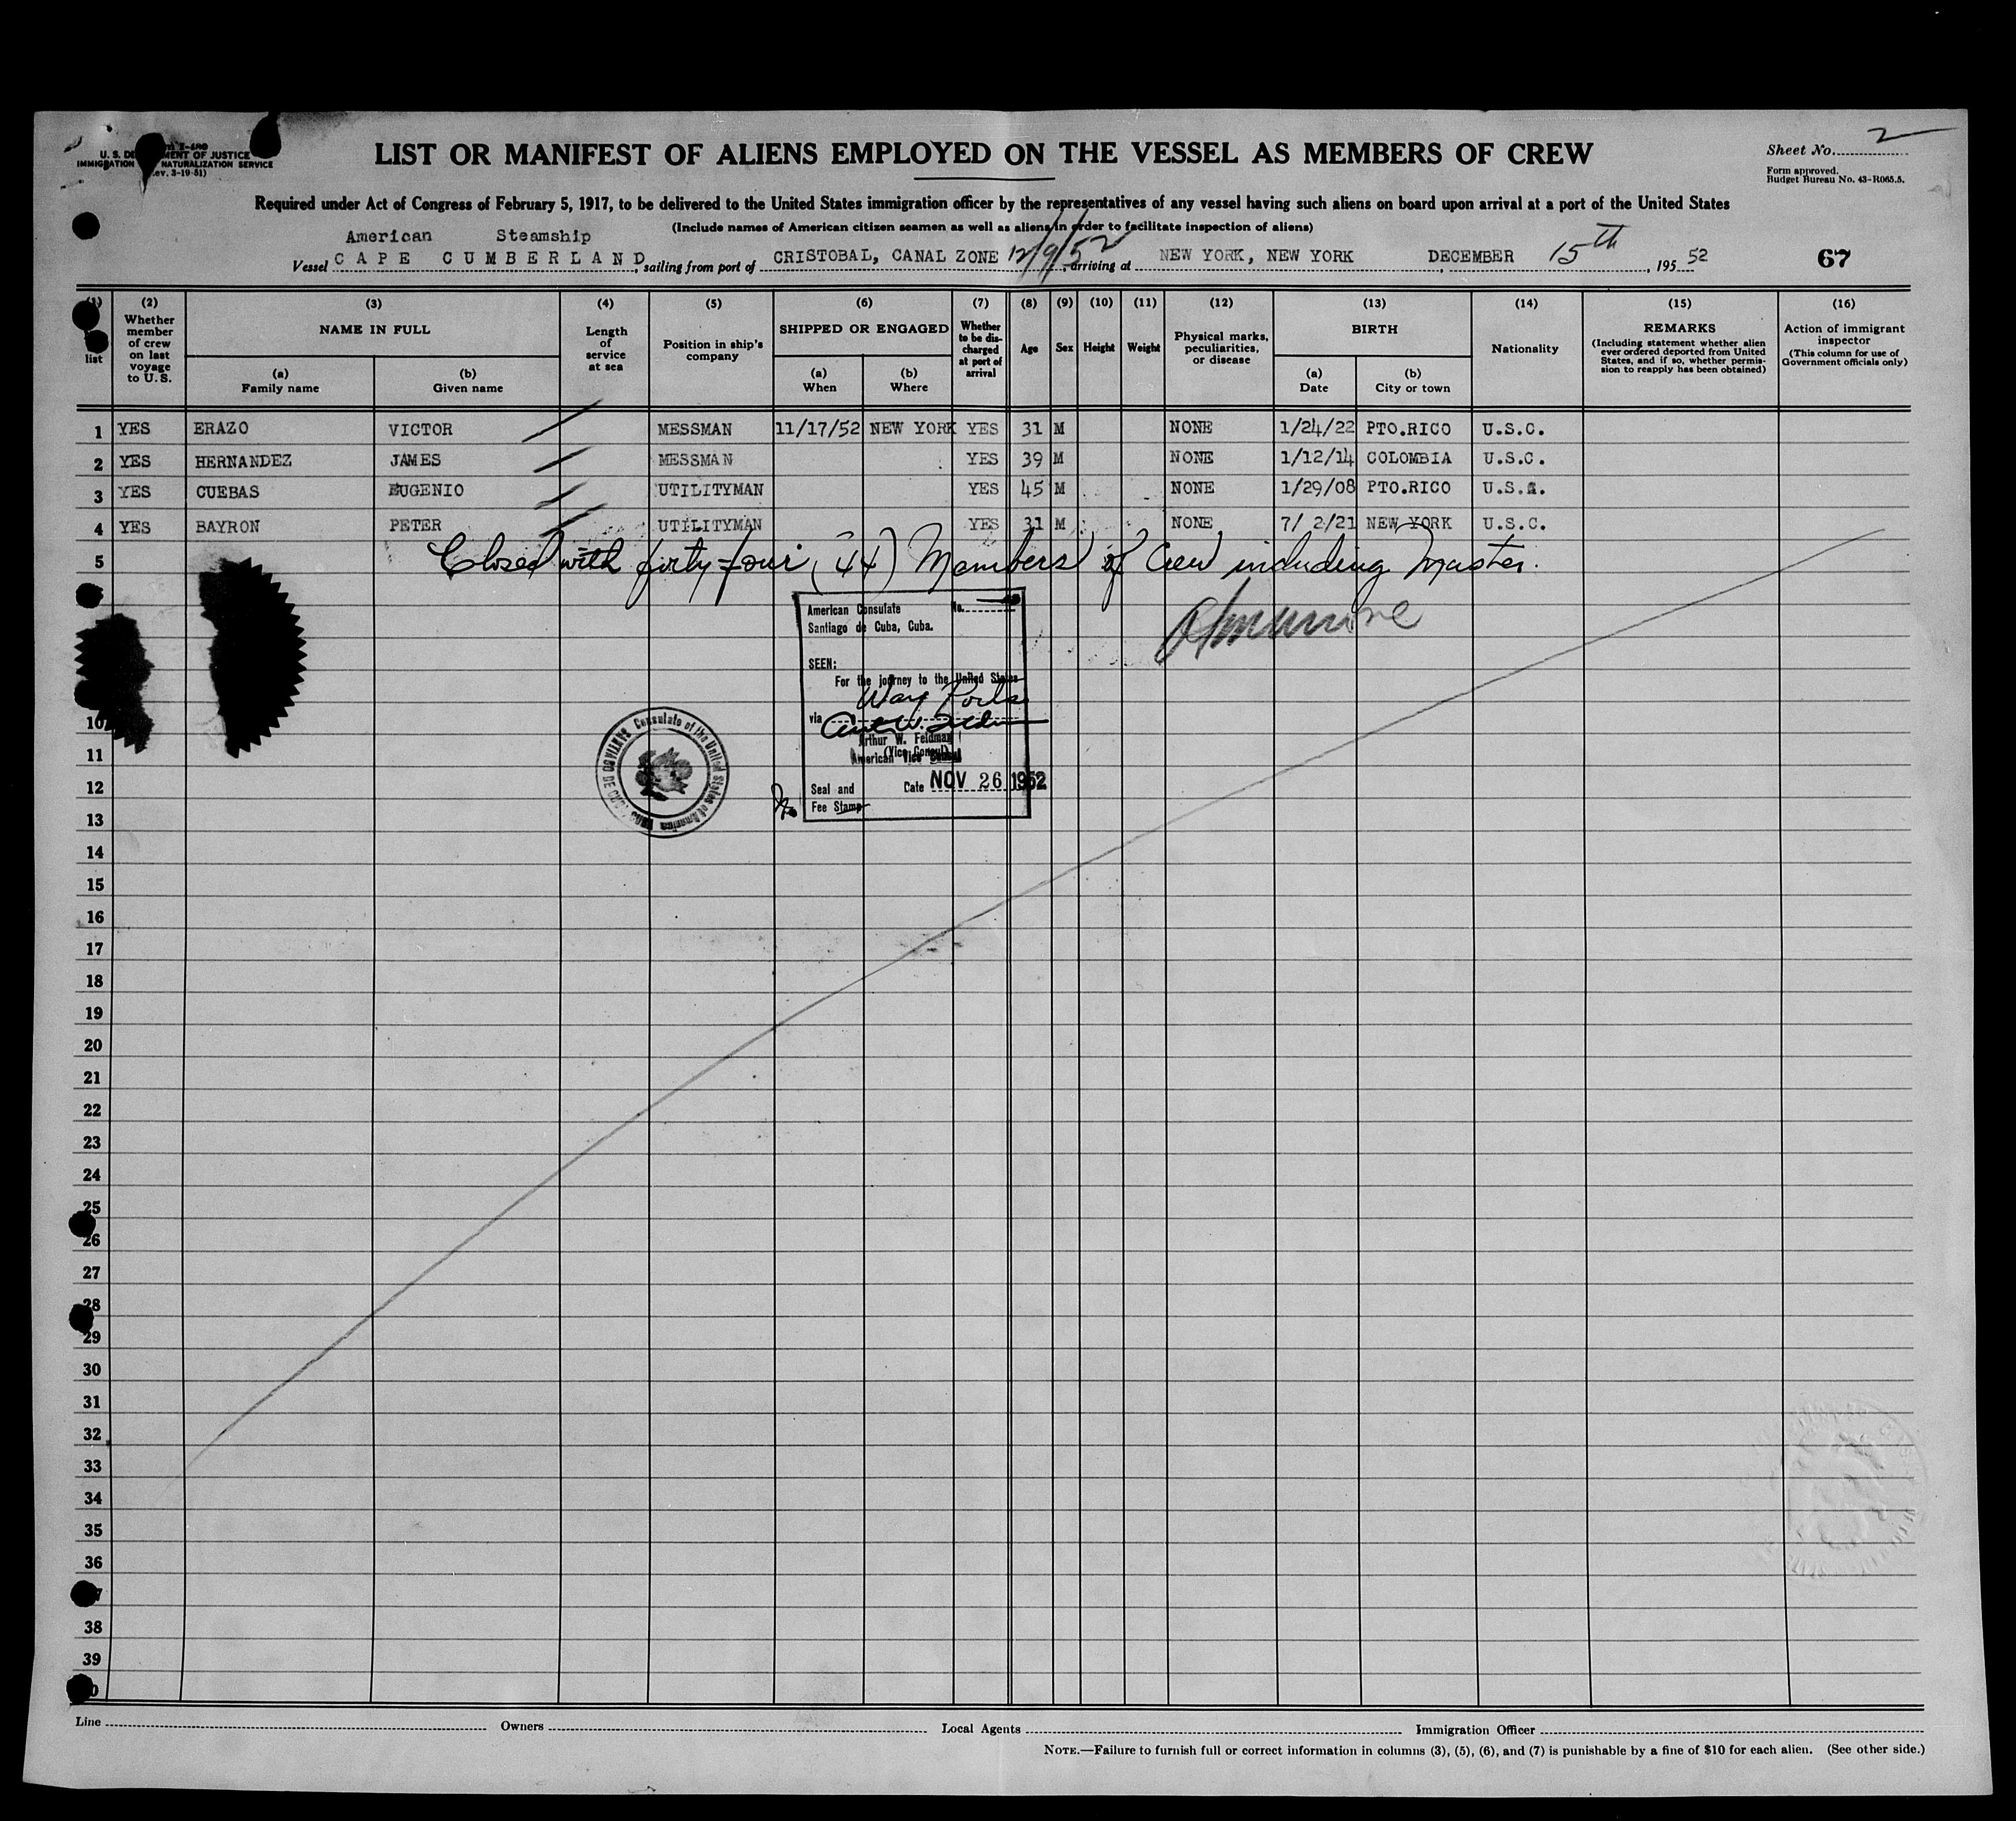 U. S. DE MENT OF JUSTICE
IMMIGRATION NATURALIZATION SERVICE
ev. 3-19-51)
LIST OR MANIFEST OF ALIENS EMPLOYED ON THE VESSEL AS MEMBERS OF CREW
Sheet No. 2
Form approved.
Budget Bureau No. 43-R065.5.
Required under Act of Congress of February 5, 1917, to be delivered to the United States immigration officer by the representatives of any vessel having such aliens on board upon arrival at a port of the United States
(Include names of American citizen seamen as well as aliens in order to facilitate inspection of aliens)
American Steamship
Vessel CAPE CUMBERLAND, sailing from port of CRISTOBAL, CANAL ZONE 12/9/52, arriving at NEW YORK, NEW YORK DECEMBER 15th, 195 52
67
(1) (2) (3) (4) (5) (6) (7) (8) (9) (10) (11) (12) (13) (14) (15) (16)
list
Whether member of crew on last voyage to U. S.
NAME IN FULL
(a) Family name
(b) Given name
Length of service at sea
Position in ship's company
SHIPPED OR ENGAGED
(a) When
(b) Where
Whether to be discharged at port of arrival
Age
Sex
Height
Weight
Physical marks, peculiarities, or disease
BIRTH
(a) Date
(b) City or town
Nationality
REMARKS
(Including statement whether alien ever ordered deported from United States, and if so, whether permission to reapply has been obtained)
Action of immigrant inspector
(This column for use of Government officials only)
1 YES ERAZO VICTOR MESSMAN 11/17/52 NEW YORK YES 31 M NONE 1/24/22 PTO.RICO U.S.C.
2 YES HERNANDEZ JAMES MESSMAN YES 39 M NONE 1/12/14 COLOMBIA U.S.C.
3 YES CUEBAS EUGENIO UTILITYMAN YES 45 M NONE 1/29/08 PTO.RICO U.S.
4 YES BAYRON PETER UTILITYMAN YES 31 M NONE 7/ 2/21 NEW YORK U.S.C.
5 Closed with forty-four (44) Members of Crew including Master.
American Consulate No.
Santiago de Cuba, Cuba.
SEEN:
For the journey to the United States
Way Ports
via
Arthur W. Feldman
(Vice Consul)
American Vice Consul
Date NOV 26 1952
Seal and
Fee Stamp
No
Consulate of the United States of America
SANTIAGO DE CUBA, CUBA
10
11
12
13
14
15
16
17
18
19
20
21
22
23
24
25
26
27
28
29
30
31
32
33
34
35
36
38
39
Line Owners Local Agents Immigration Officer
NOTE.—Failure to furnish full or correct information in columns (3), (5), (6), and (7) is punishable by a fine of $10 for each alien. (See other side.)